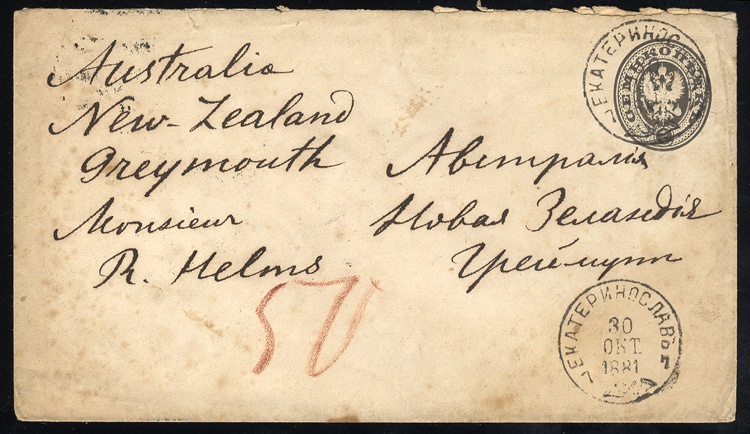 Australia
New-Zealand
Greymouth
Monsieur
R. Helms
Австралія
Новая Зеландія
Греймутъ
50
ЕКАТЕРИНОС
ЕКАТЕРИНОСЛАВЪ
30
ОКТ.
1881